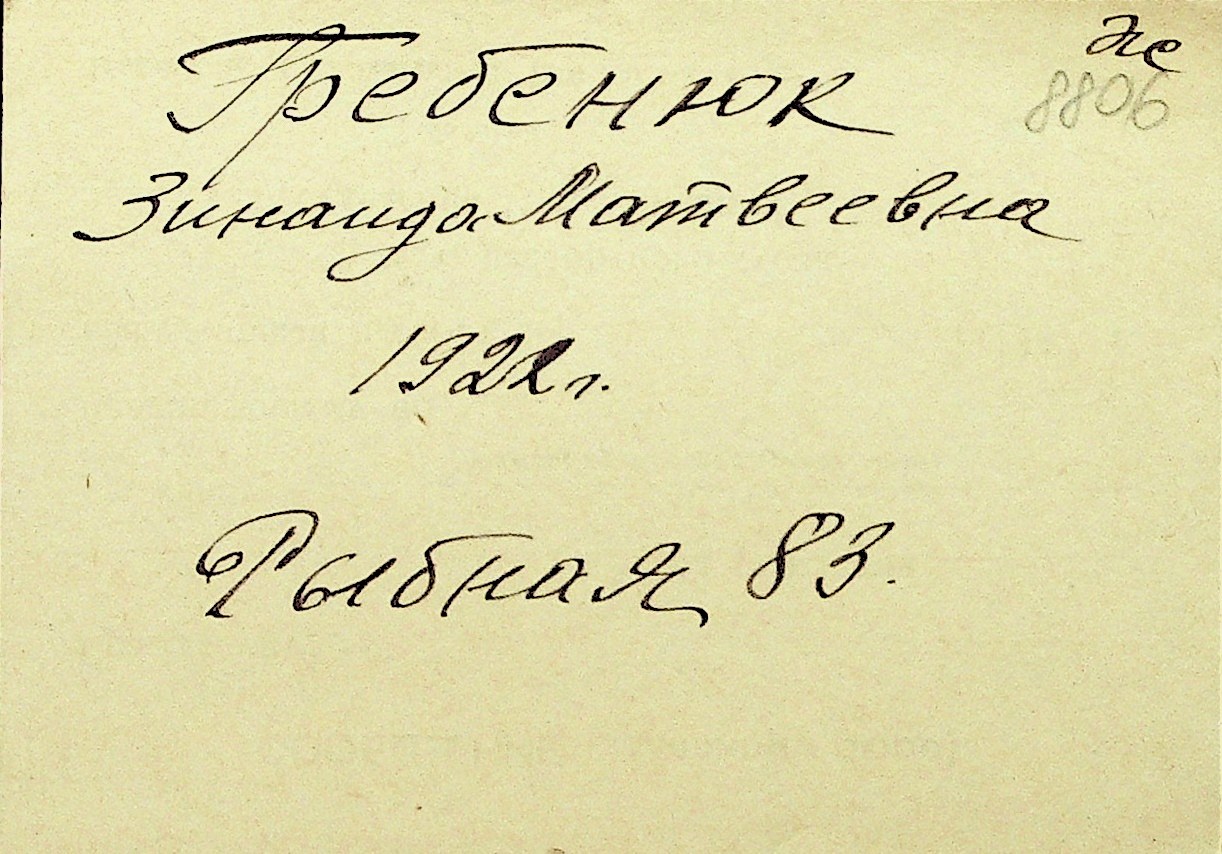 Гребенюк
8806
Зинаида Матвеевна
1922 г.
Рыбная 83.